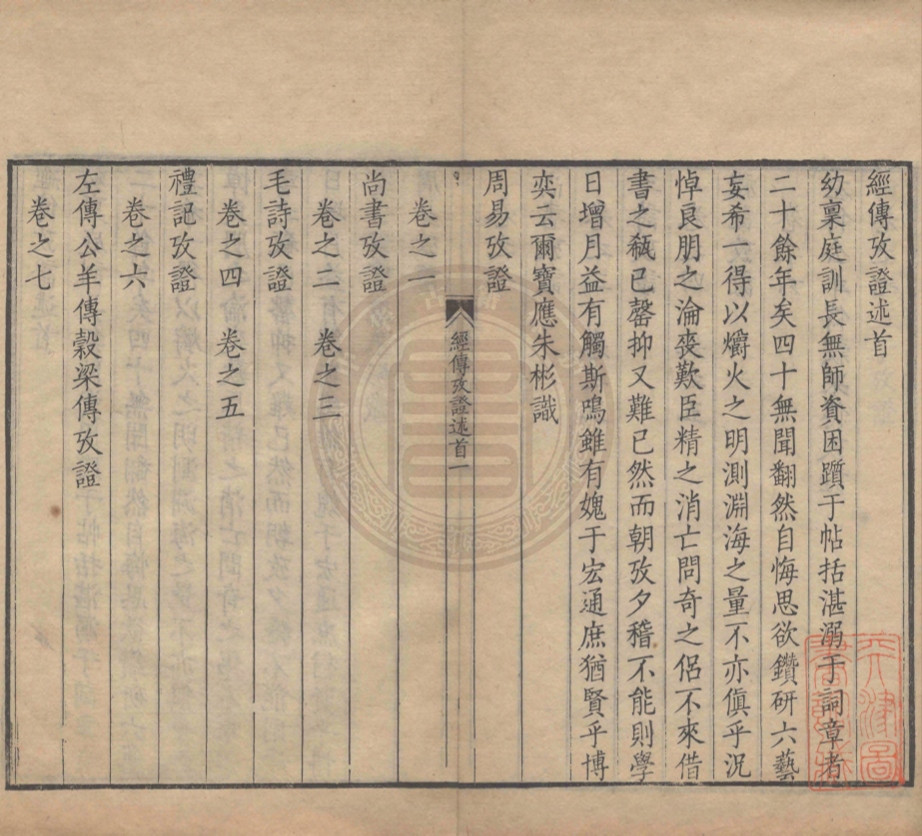 經傳攷證述首
幼稟庭訓長無師資困躓于帖括湛溺于詞章者
二十餘年矣四十無聞翻然自悔思欲鑽研六藝
妄希一得以爝火之明測淵海之量不亦傎乎況
悼良朋之淪喪歎臣精之消亡問奇之侶不來借
書之瓻已罄抑又難已然而朝攷夕稽不能則學
日增月益有觸斯鳴雖有媿于宏通庶猶賢乎博
奕云爾寶應朱彬識
周易攷證
卷之一
經傳攷證述首一
尚書攷證
卷之二 卷之三
毛詩攷證
卷之四 卷之五
禮記攷證
卷之六
左傳公羊傳穀梁傳攷證
卷之七